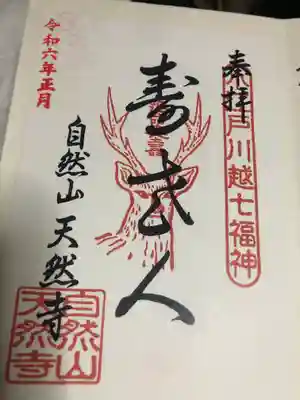 奉拝
小江戸川越七福神
寿老人
令和六年正月
自然山 天然寺
自然山
天然寺